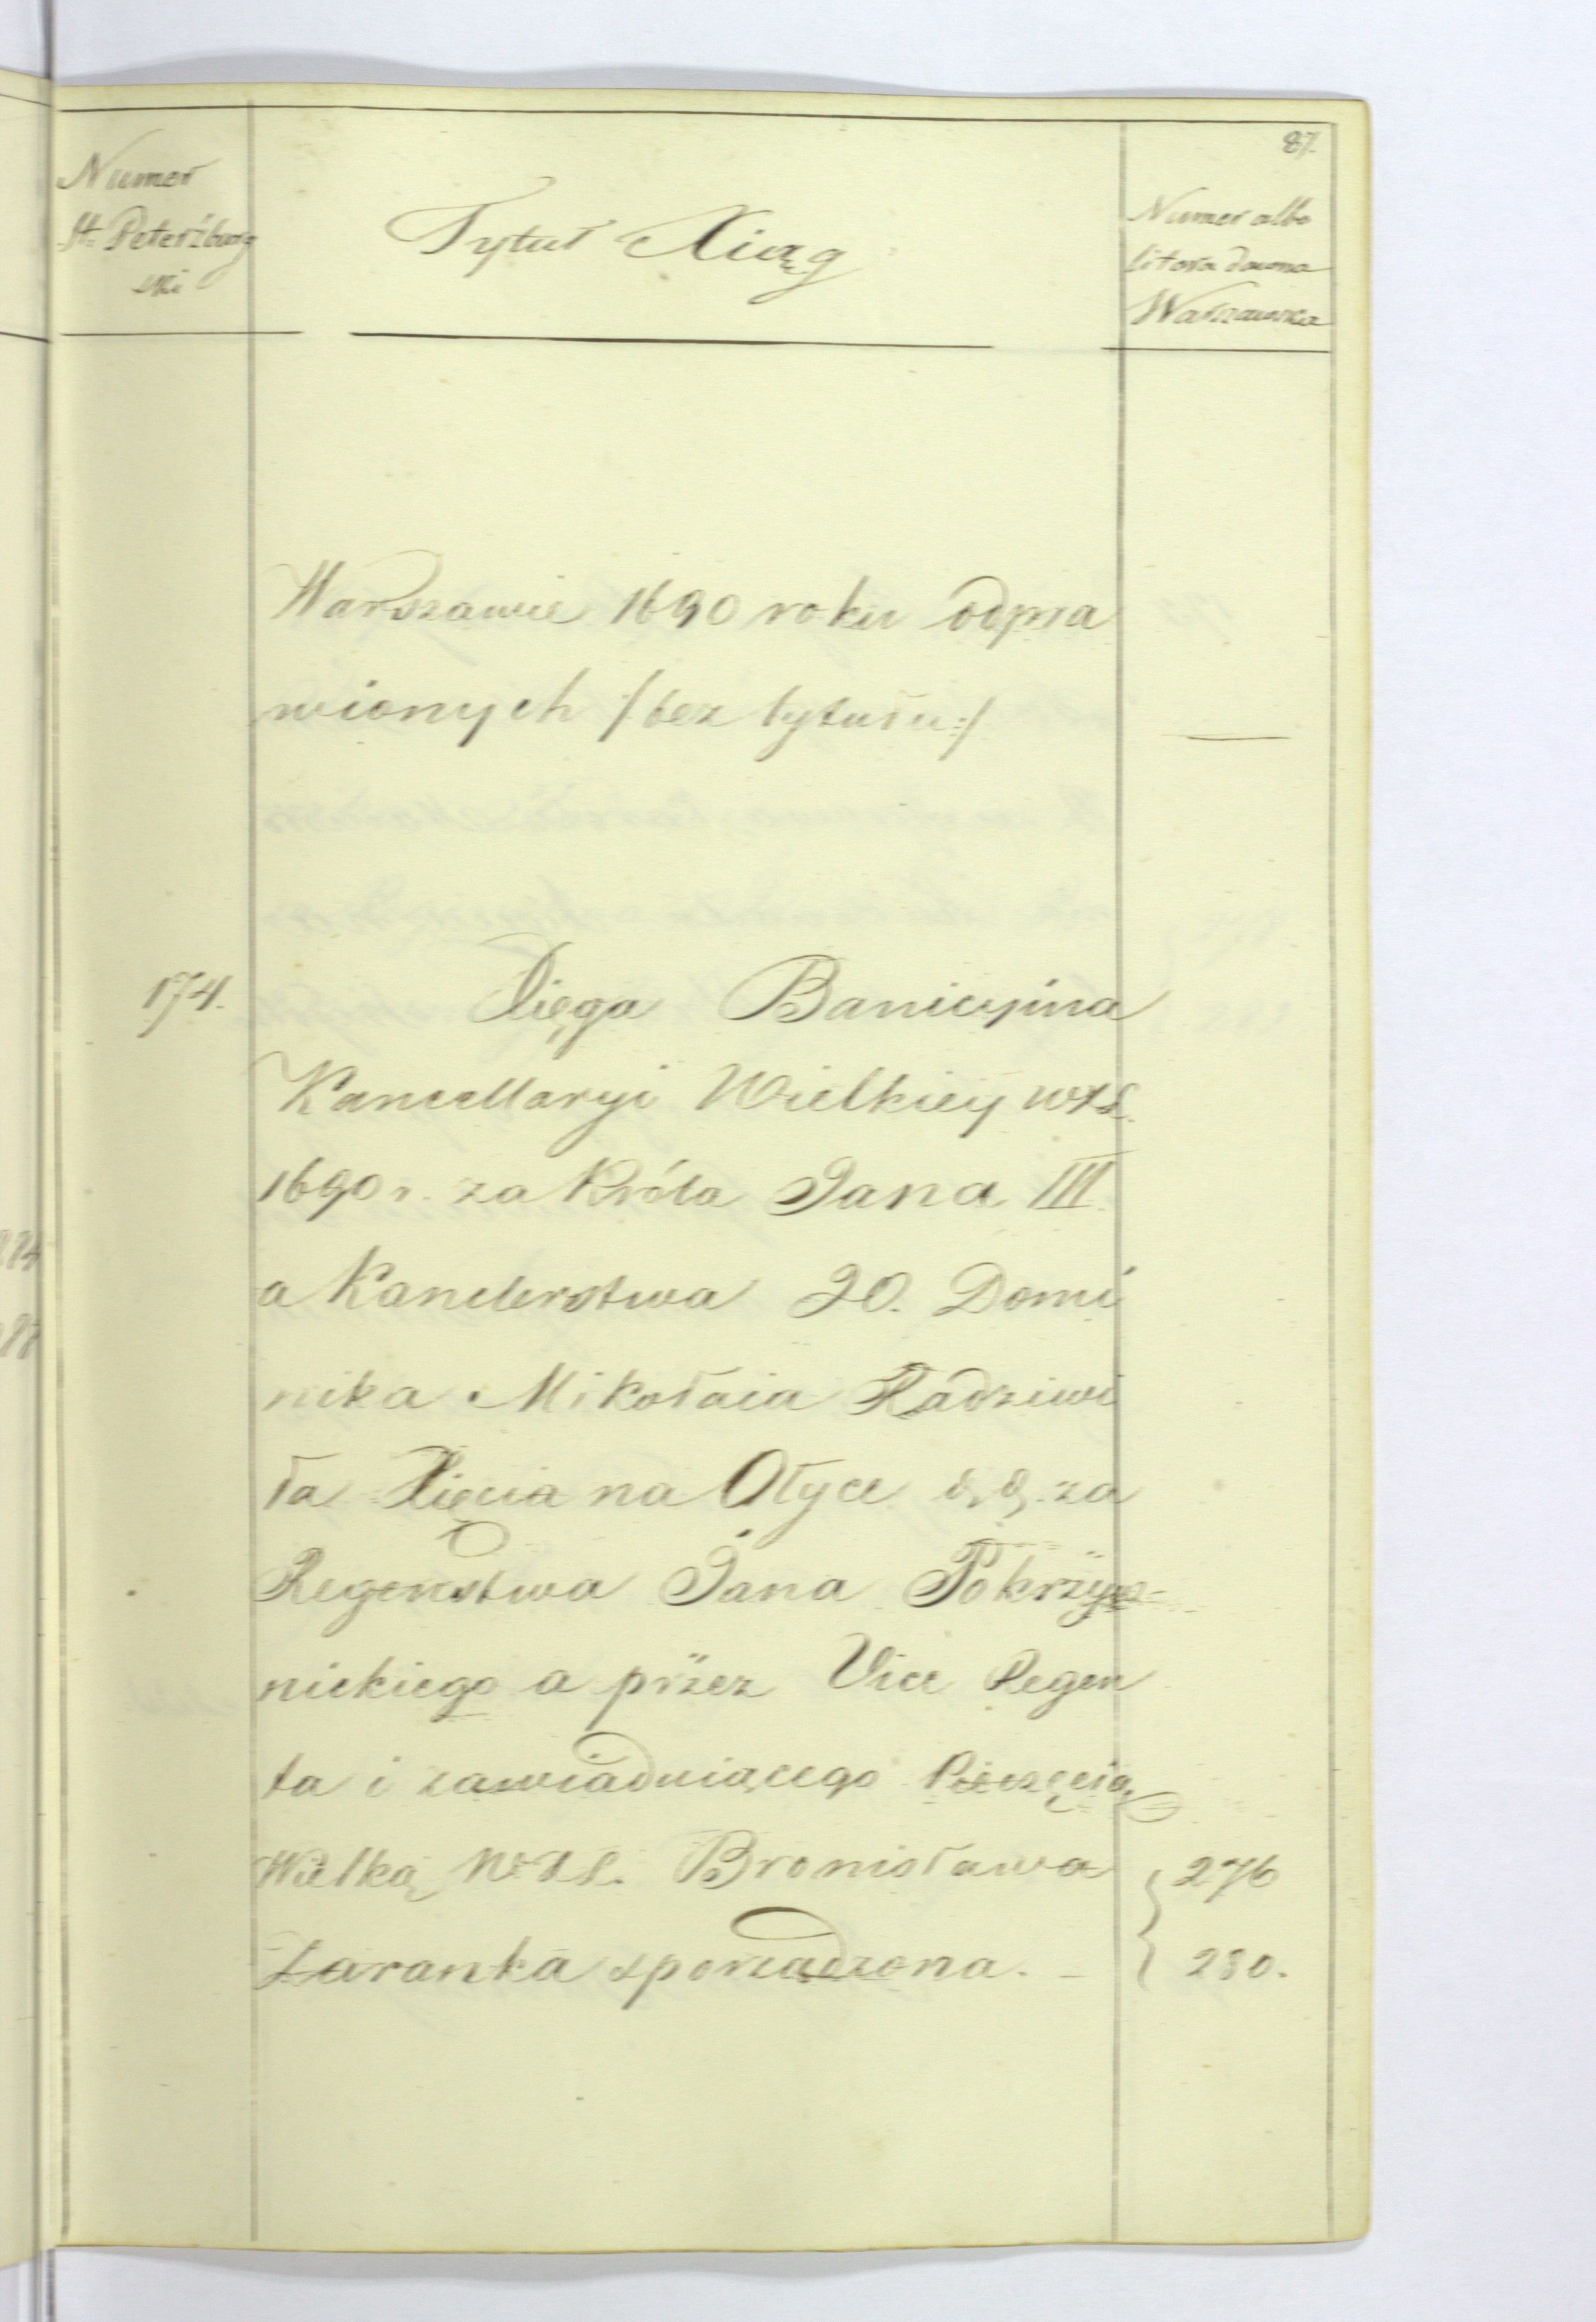 87.
Numer
St. Peterzburg
ski
Tytuł Xiąg
Numer albo
litera dawna
Warszawska
Warszawie 1690 roku odpra
wionych /:bez tytułu:/
174.
Xięga Banicyina
Kancellaryi Wielkiey WXL.
1690 r. za Króla Jana III
a Kanclerstwa JO. Domi
nika Mikołaia Radziwi
ła Xięcia na Ołyce &, &. za
Regenstwa Jana Pokrzyw-
nickiego a przez Vice Regen
ta i zawiaduiącego Pieczęcią
Wielką WXL. Bronisława
Zaranka sporządzona. -
276
280.